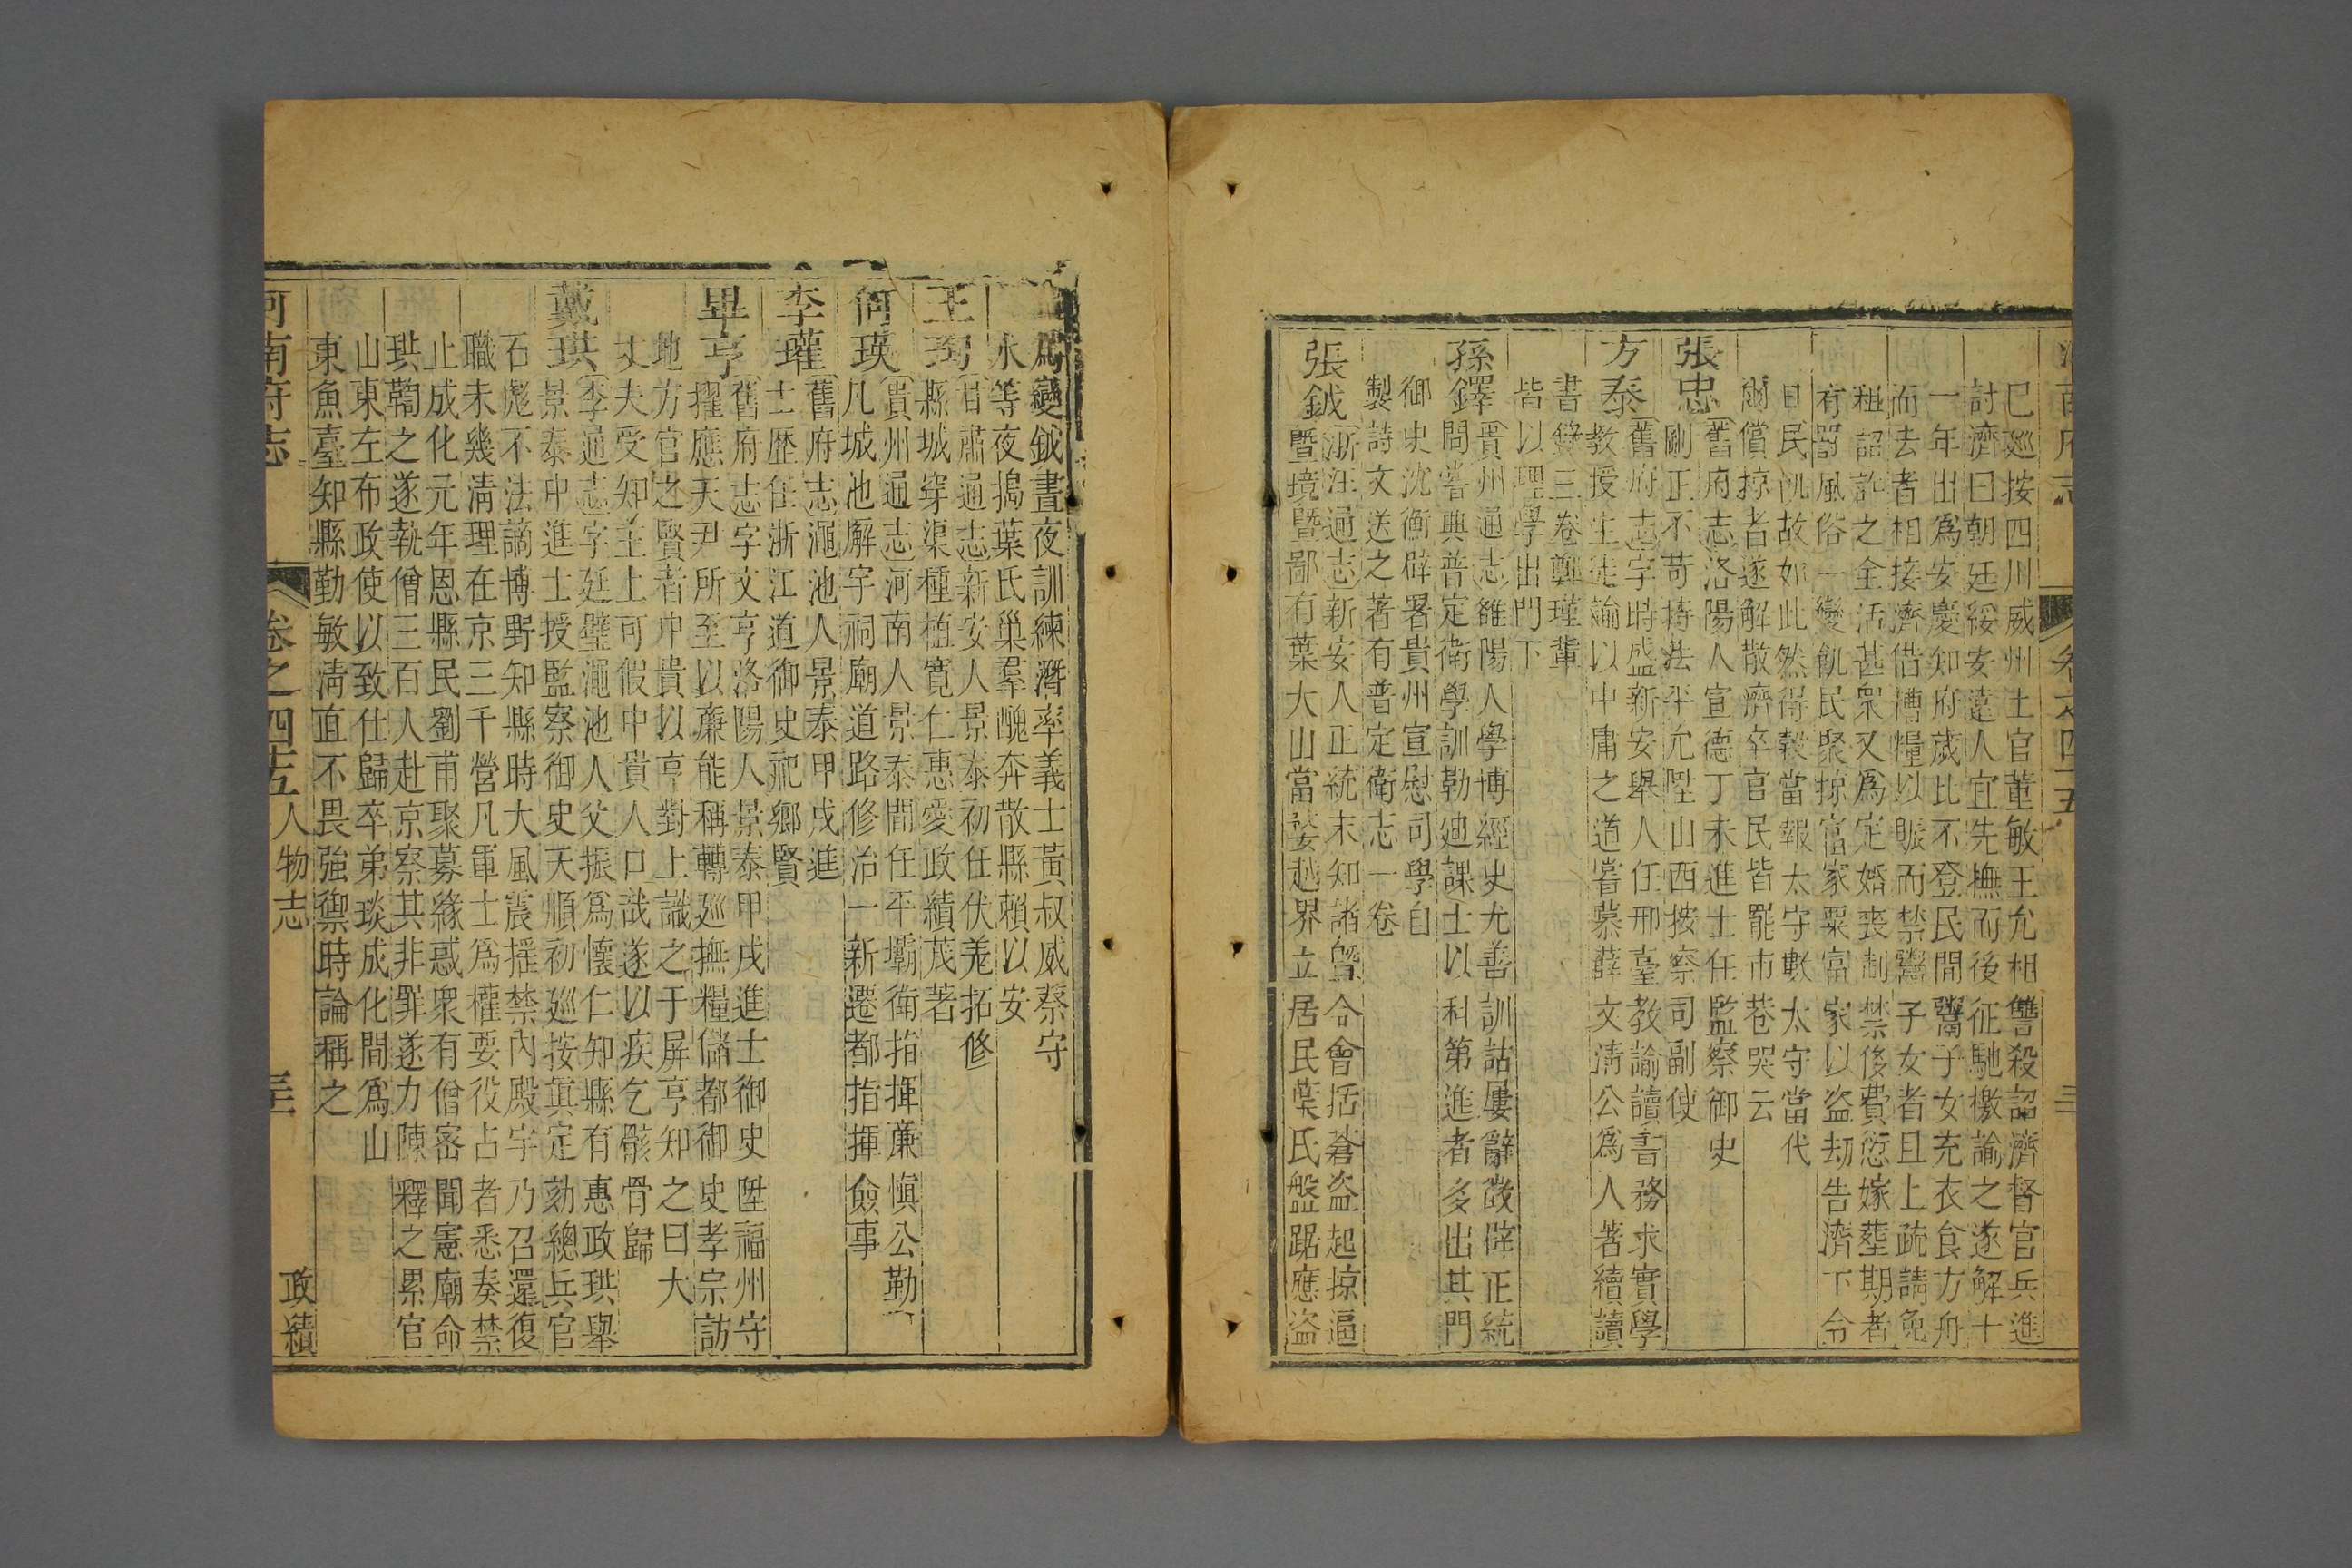 河南府志
卷之四十五
巳廵按四川威州土官董敏王允相讐殺詔濟督官兵進
討濟曰朝廷綏安遠人宜先撫而後征馳檄諭之遂解十
一年出為安慶知府歲比不登民間鬻子女充衣食方舟
而去者相接濟借漕糧以賑而禁鬻子女者且上疏請免
租詔許之全活甚衆又爲定婚喪制禁侈費愆嫁塟期者
有罰風俗一變飢民聚掠富家粟富家以盜劫告濟下令
曰民飢故如此然得穀當報太守數太守當代
爾償掠者遂解散濟卒官民皆罷市巷哭云
張忠 舊府志洛陽人宣德丁未進士任監察御史
剛正不苛持法平允陞山西按察司副使
方泰 舊府志字時盛新安舉人任邢臺教諭讀書務求實學
教授生徒諭以中庸之道嘗慕薛文淸公爲人著續讀
書錄三卷鄭瑾輩
皆以理學出門下
孫鐸 貴州通志雒陽人學博經史尤善訓詁屢辭徵辟正統
間嘗典普定衛學訓勒廸課士以科第進者多出其門
御史沈衡辟署貴州宣慰司學自
製詩文送之著有普定衛志一卷
張鉞 浙江通志新安人正統末知諸曁合會括蒼盜起掠逼
曁境曁鄙有葉大山當婺越界立居民葉氏盤踞應盜
爲變鉞晝夜訓練濳率義士黃叔威蔡守
永等夜搗葉氏巢羣醜奔散縣賴以安
王珣 甘肅通志新安人景泰初任伏羌拓修
縣城穿渠種植寬仁惠愛政績茂著
何瑛 貴州通志河南人景泰間任平壩衛指揮亷愼公勤
凡城池廨宇祠廟道路修治一新遷都指揮僉事
李瓘 舊府志澠池人景泰甲戌進
士歴任浙江道御史祀鄉賢
畢亨 舊府志字文亨洛陽人景泰甲戌進士御史陞福州守
擢應天尹所至以亷能稱轉廵撫糧儲都御史孝宗訪
地方官之賢者中貴以亨對上識之于屏亨知之曰大
丈夫受知主上可假中貴人口哉遂以疾乞骸骨歸
戴珙 李通志字廷璧澠池人父振爲懷仁知縣有惠政珙舉
景泰中進士授監察御史天順初廵按眞定劾總兵官
石彪不法謫博野知縣時大風震摇禁內殿宇乃召還復
職未幾淸理在京三千營凡軍士爲權要役占者悉奏禁
止成化元年恩縣民劉甫聚募緣惑衆有僧宻聞憲廟命
珙鞫之遂執僧三百人赴京察其非罪遂力陳釋之累官
山東左布政使以致仕歸卒弟琰成化間爲山
東魚臺知縣勤敏淸直不畏強禦時論稱之
河南府志
卷之四十五人物志
政績